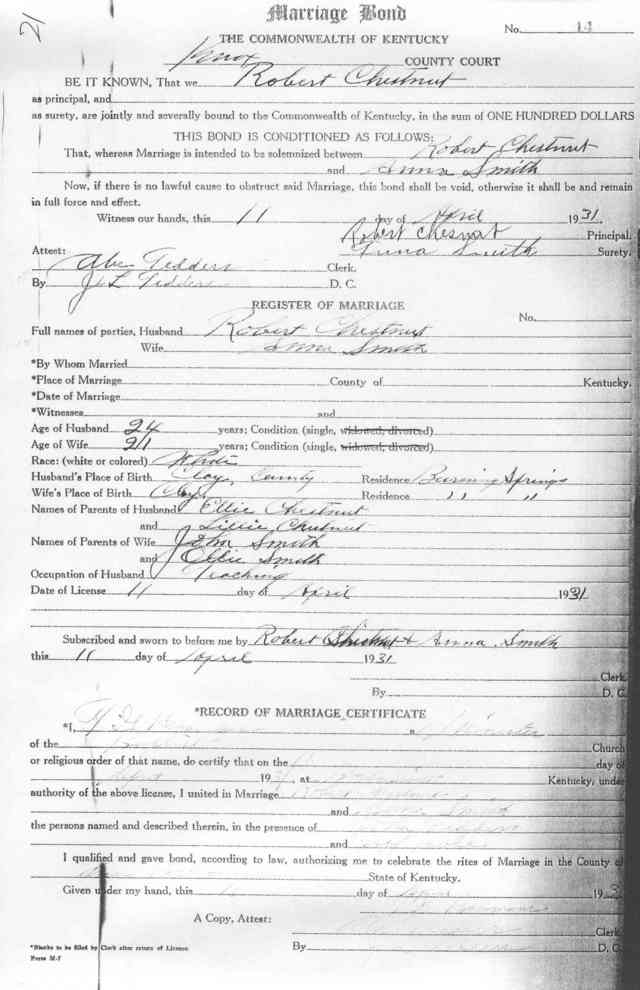 21
Marriage Bond
No. 14
THE COMMONWEALTH OF KENTUCKY
Knox COUNTY COURT
BE IT KNOWN, That we Robert Chestnut
as principal, and
as surety, are jointly and severally bound to the Commonwealth of Kentucky, in the sum of ONE HUNDRED DOLLARS
THIS BOND IS CONDITIONED AS FOLLOWS:
That, whereas Marriage is intended to be solemnized between Robert Chestnut
and Anna Smith
Now, if there is no lawful cause to obstruct said Marriage, this bond shall be void, otherwise it shall be and remain
in full force and effect.
Witness our hands, this 11 day of April 1931
Robert Chesnut Principal.
Attest: Anna Smith Surety.
Abe Tedders Clerk.
By J. L. Tedders D. C.
REGISTER OF MARRIAGE
No.
Full names of parties, Husband Robert Chestnut
Wife Anna Smith
*By Whom Married
*Place of Marriage County of Kentucky.
*Date of Marriage
*Witnesses and
Age of Husband 24 years; Condition (single, widowed, divorced)
Age of Wife 21 years; Condition (single, widowed, divorced)
Race: (white or colored) White
Husband's Place of Birth Clay County Residence Burning Springs
Wife's Place of Birth Clay Residence " "
Names of Parents of Husband Ellie Chestnut
and Lillie Chestnut
Names of Parents of Wife John Smith
and Ellie Smith
Occupation of Husband Teaching
Date of License 11 day of April 1931
Subscribed and sworn to before me by Robert Chestnut & Anna Smith
this 11 day of April 1931
Clerk
By D. C.
*RECORD OF MARRIAGE CERTIFICATE
*I, a Minister
of the Church
or religious order of that name, do certify that on the day of
19 at Kentucky, under
authority of the above license, I united in Marriage
and Smith
the persons named and described therein, in the presence of
and
I qualified and gave bond, according to law, authorizing me to celebrate the rites of Marriage in the County of
State of Kentucky.
Given under my hand, this day of 193
A Copy, Attest:
Clerk
By D. C.
*Blanks to be filled by Clerk after return of License
Form M-7